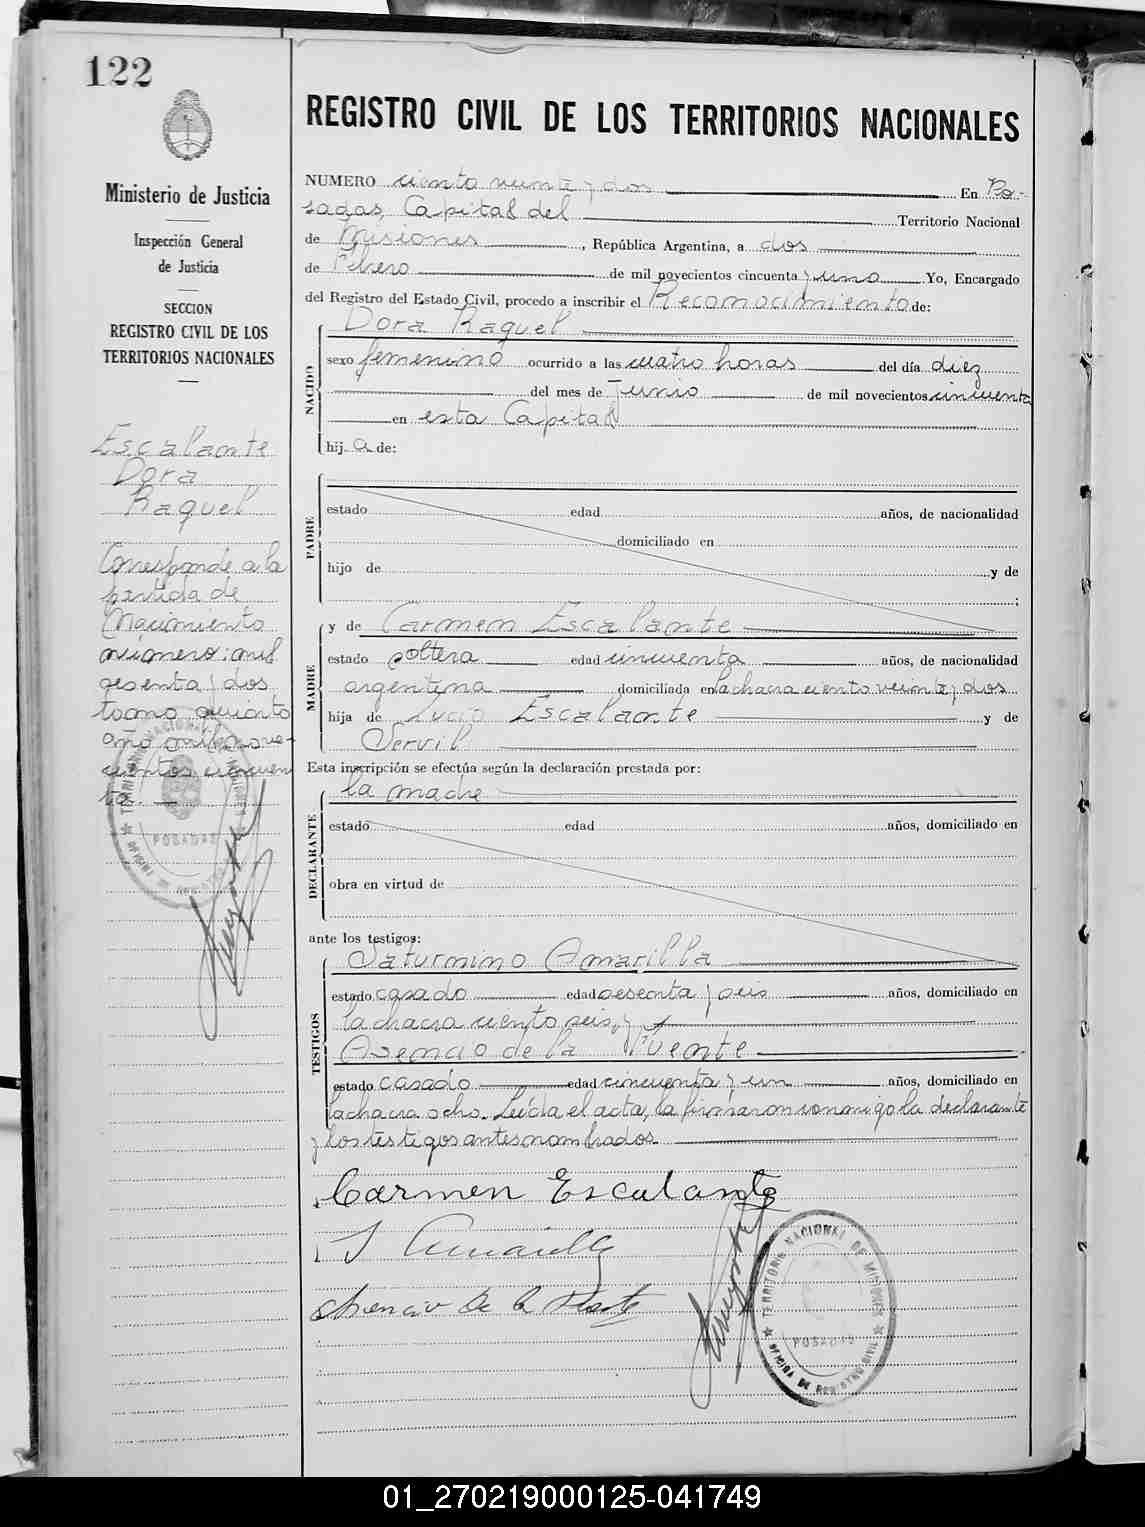 122
Ministerio de Justicia
Inspección General
de Justicia
SECCION
REGISTRO CIVIL DE LOS
TERRITORIOS NACIONALES
Escalante
Dora
Raquel
Corresponde a la
partida de
Nacimiento
número: mil
sesenta y dos
tomo quinto
año mil nove-
cientos cincuen
ta.
TERRITORIO NACIONAL DE MISIONES
POSADAS
OFICINA DE REGISTRO CIVIL
REGISTRO CIVIL DE LOS TERRITORIOS NACIONALES
NUMERO ciento veinte y dos En Po-
sadas, Capital del Territorio Nacional
de Misiones, República Argentina, a dos
de Febrero de mil novecientos cincuenta y uno Yo, Encargado
del Registro del Estado Civil, procedo a inscribir el Reconocimiento de:
NACIDO
Dora Raquel
sexo femenino ocurrido a las cuatro horas del día diez
del mes de Junio de mil novecientos cincuenta
en esta Capital
hij a de:
PADRE
estado edad años, de nacionalidad
domiciliado en
hijo de y de
;
MADRE
y de Carmen Escalante
estado soltera edad cincuenta años, de nacionalidad
argentina domiciliada en la chacra ciento veinte y dos
hija de Lucio Escalante y de
Servil
Esta inscripción se efectúa según la declaración prestada por:
DECLARANTE
la madre
estado edad años, domiciliado en
obra en virtud de
ante los testigos:
TESTIGOS
Saturnino Amarilla
estado casado edad sesenta y seis años, domiciliado en
la chacra ciento seis, y
Asencio de la Fuente
estado casado edad cincuenta y un años, domiciliado en
la chacra ocho. Leída el acta, la firmaron conmigo la declarante
y los testigos antes nombrados.
Carmen Escalante
S Amarilla
Asencio de la Fuente
TERRITORIO NACIONAL DE MISIONES
POSADAS
OFICINA DE REGISTRO CIVIL
01_270219000125-041749